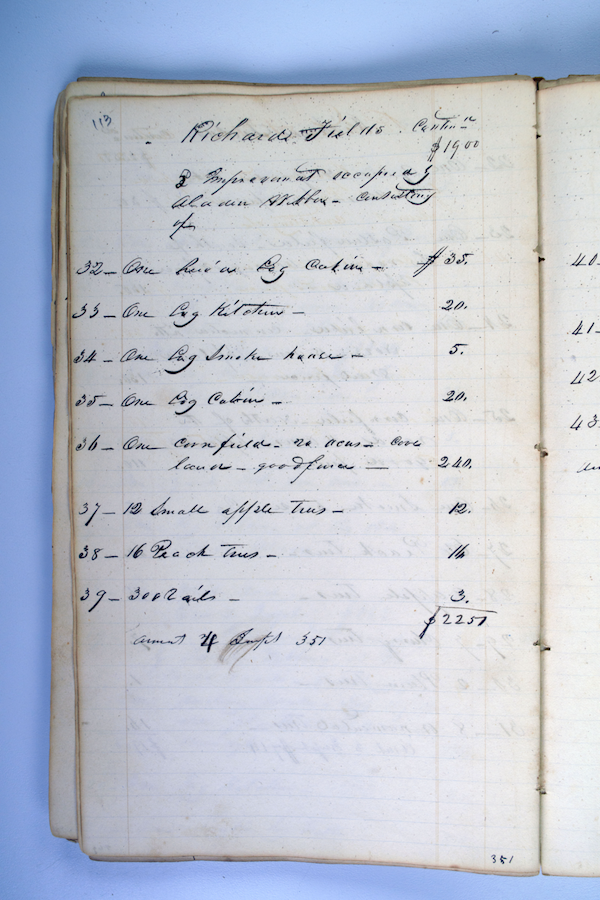 113
Richard Fields. Contin d
$1900
3 Improvement occupied by
consisting
of
32 – One hewn Log Cabin – $35.
33 – One Log Kitchen – 20.
34 – One Log Smoke house – 5.
35 – One Log Cabin – 20.
36 – One cornfield – 20 acres –
land – good fence – 240.
37 – 12 Small apple trees – 12.
38 – 16 Peach trees – 16
39 – 300 Rails – 3.
$2251
amnt 4 Impt 351
351
40–
41–
42
43